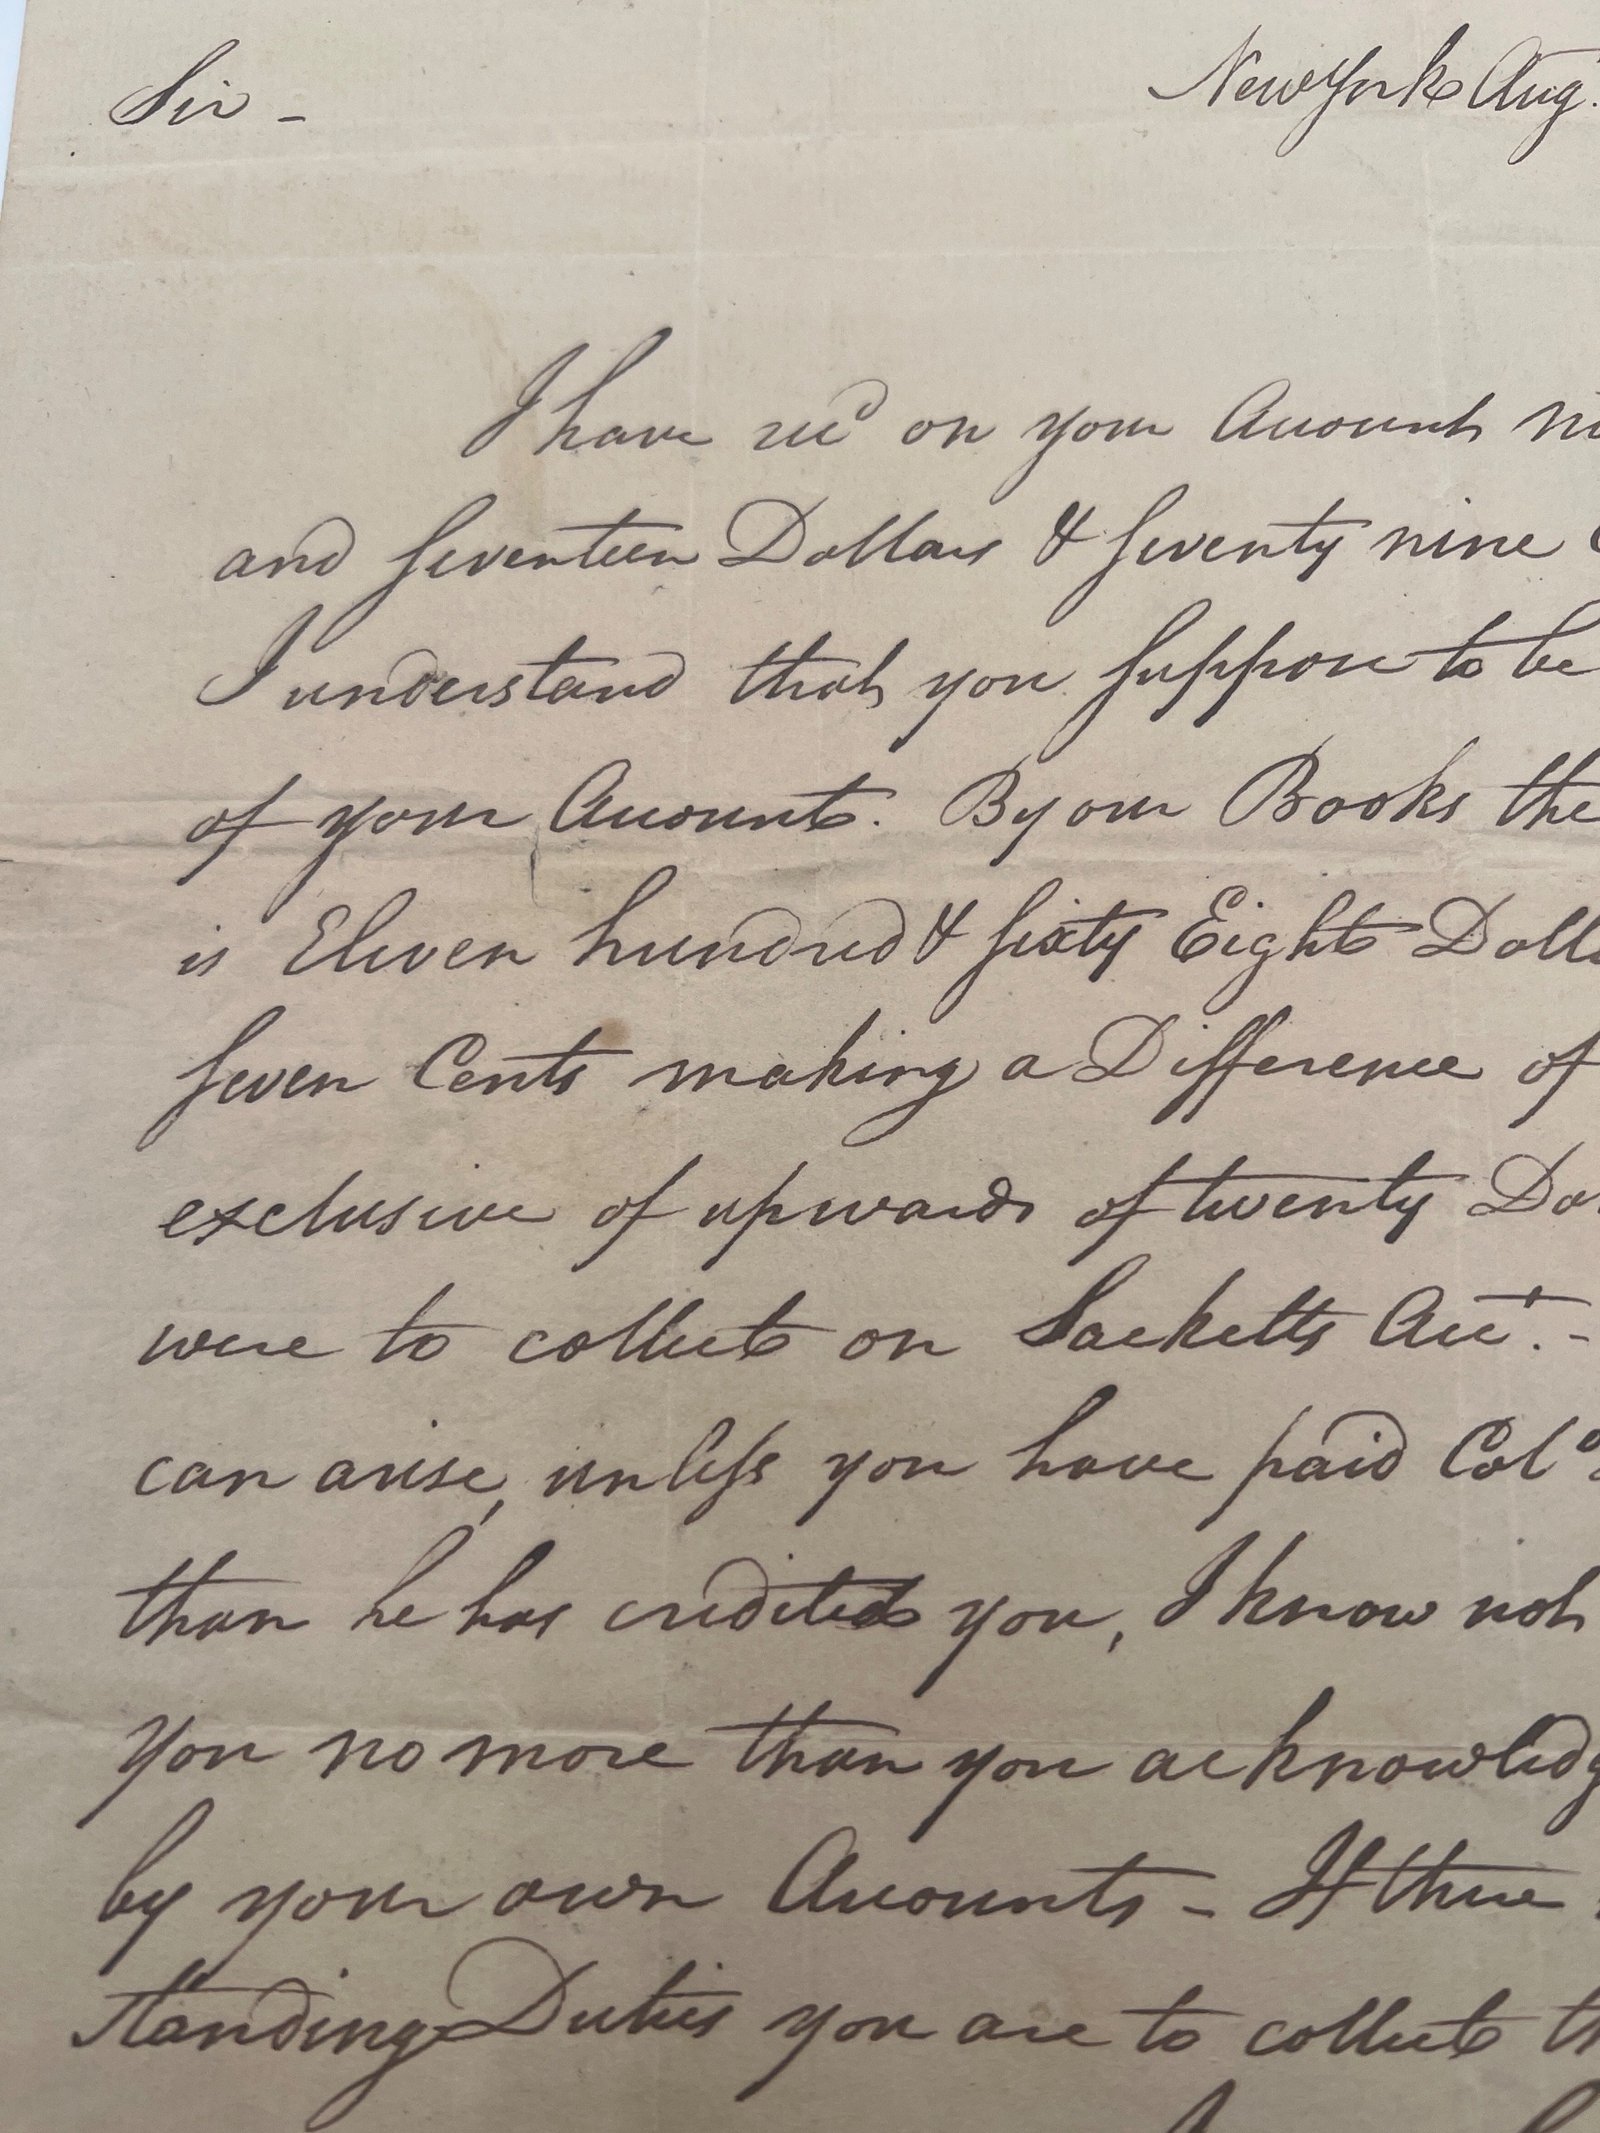 Sir - New York Aug.
I have recd on your Account ni
and seventeen Dollars & seventy nine
I understand that you suppose to be
of your Account. By our Books the
is Eleven hundred & sixty Eight Doll
seven Cents making a Difference of
exclusive of upwards of twenty Do
were to collect on Sacketts Acct. -
can arise, unless you have paid Colo
than he has credited you, I know not
you no more than you acknowledg
by your own Accounts - If there
standing Duties you are to collect th